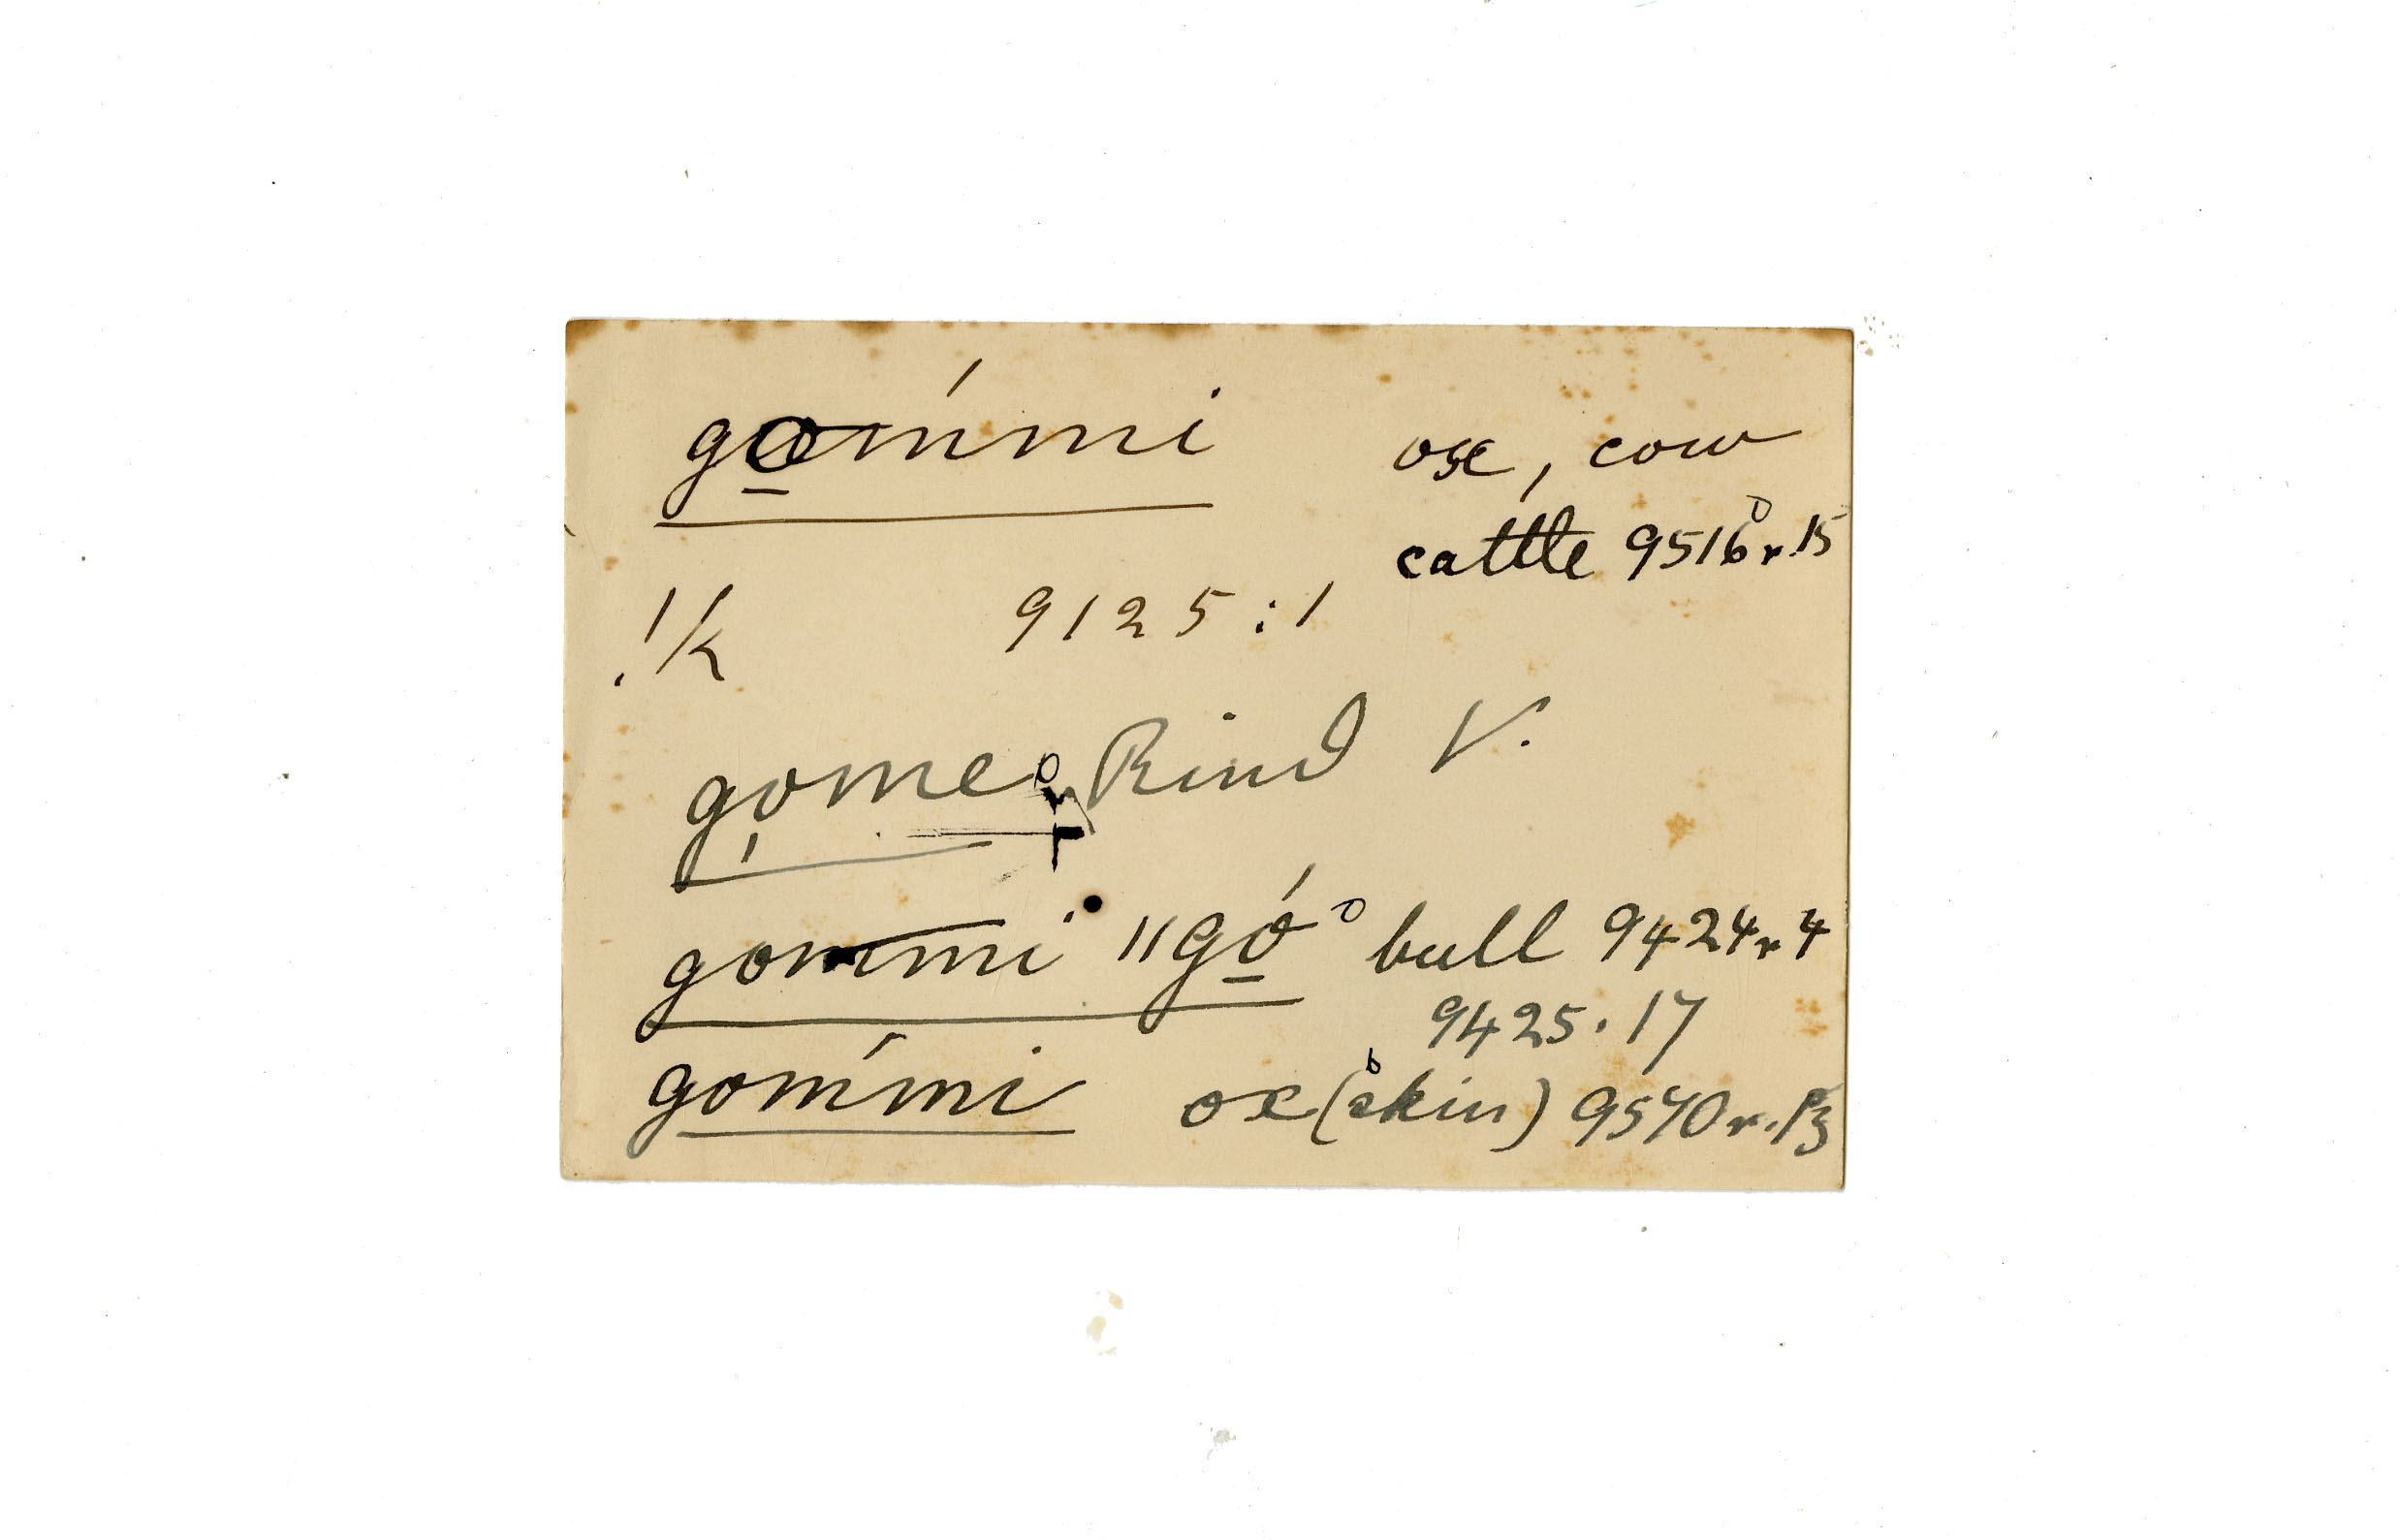 go̱ḿmi ox, cow
cattle 9516° r. 15
!k 9125 : 1
gome Rind V.
gommi ||gó̱° bull 9424 r 4
9425. 17
goḿmi ox (skin) 9570 r.